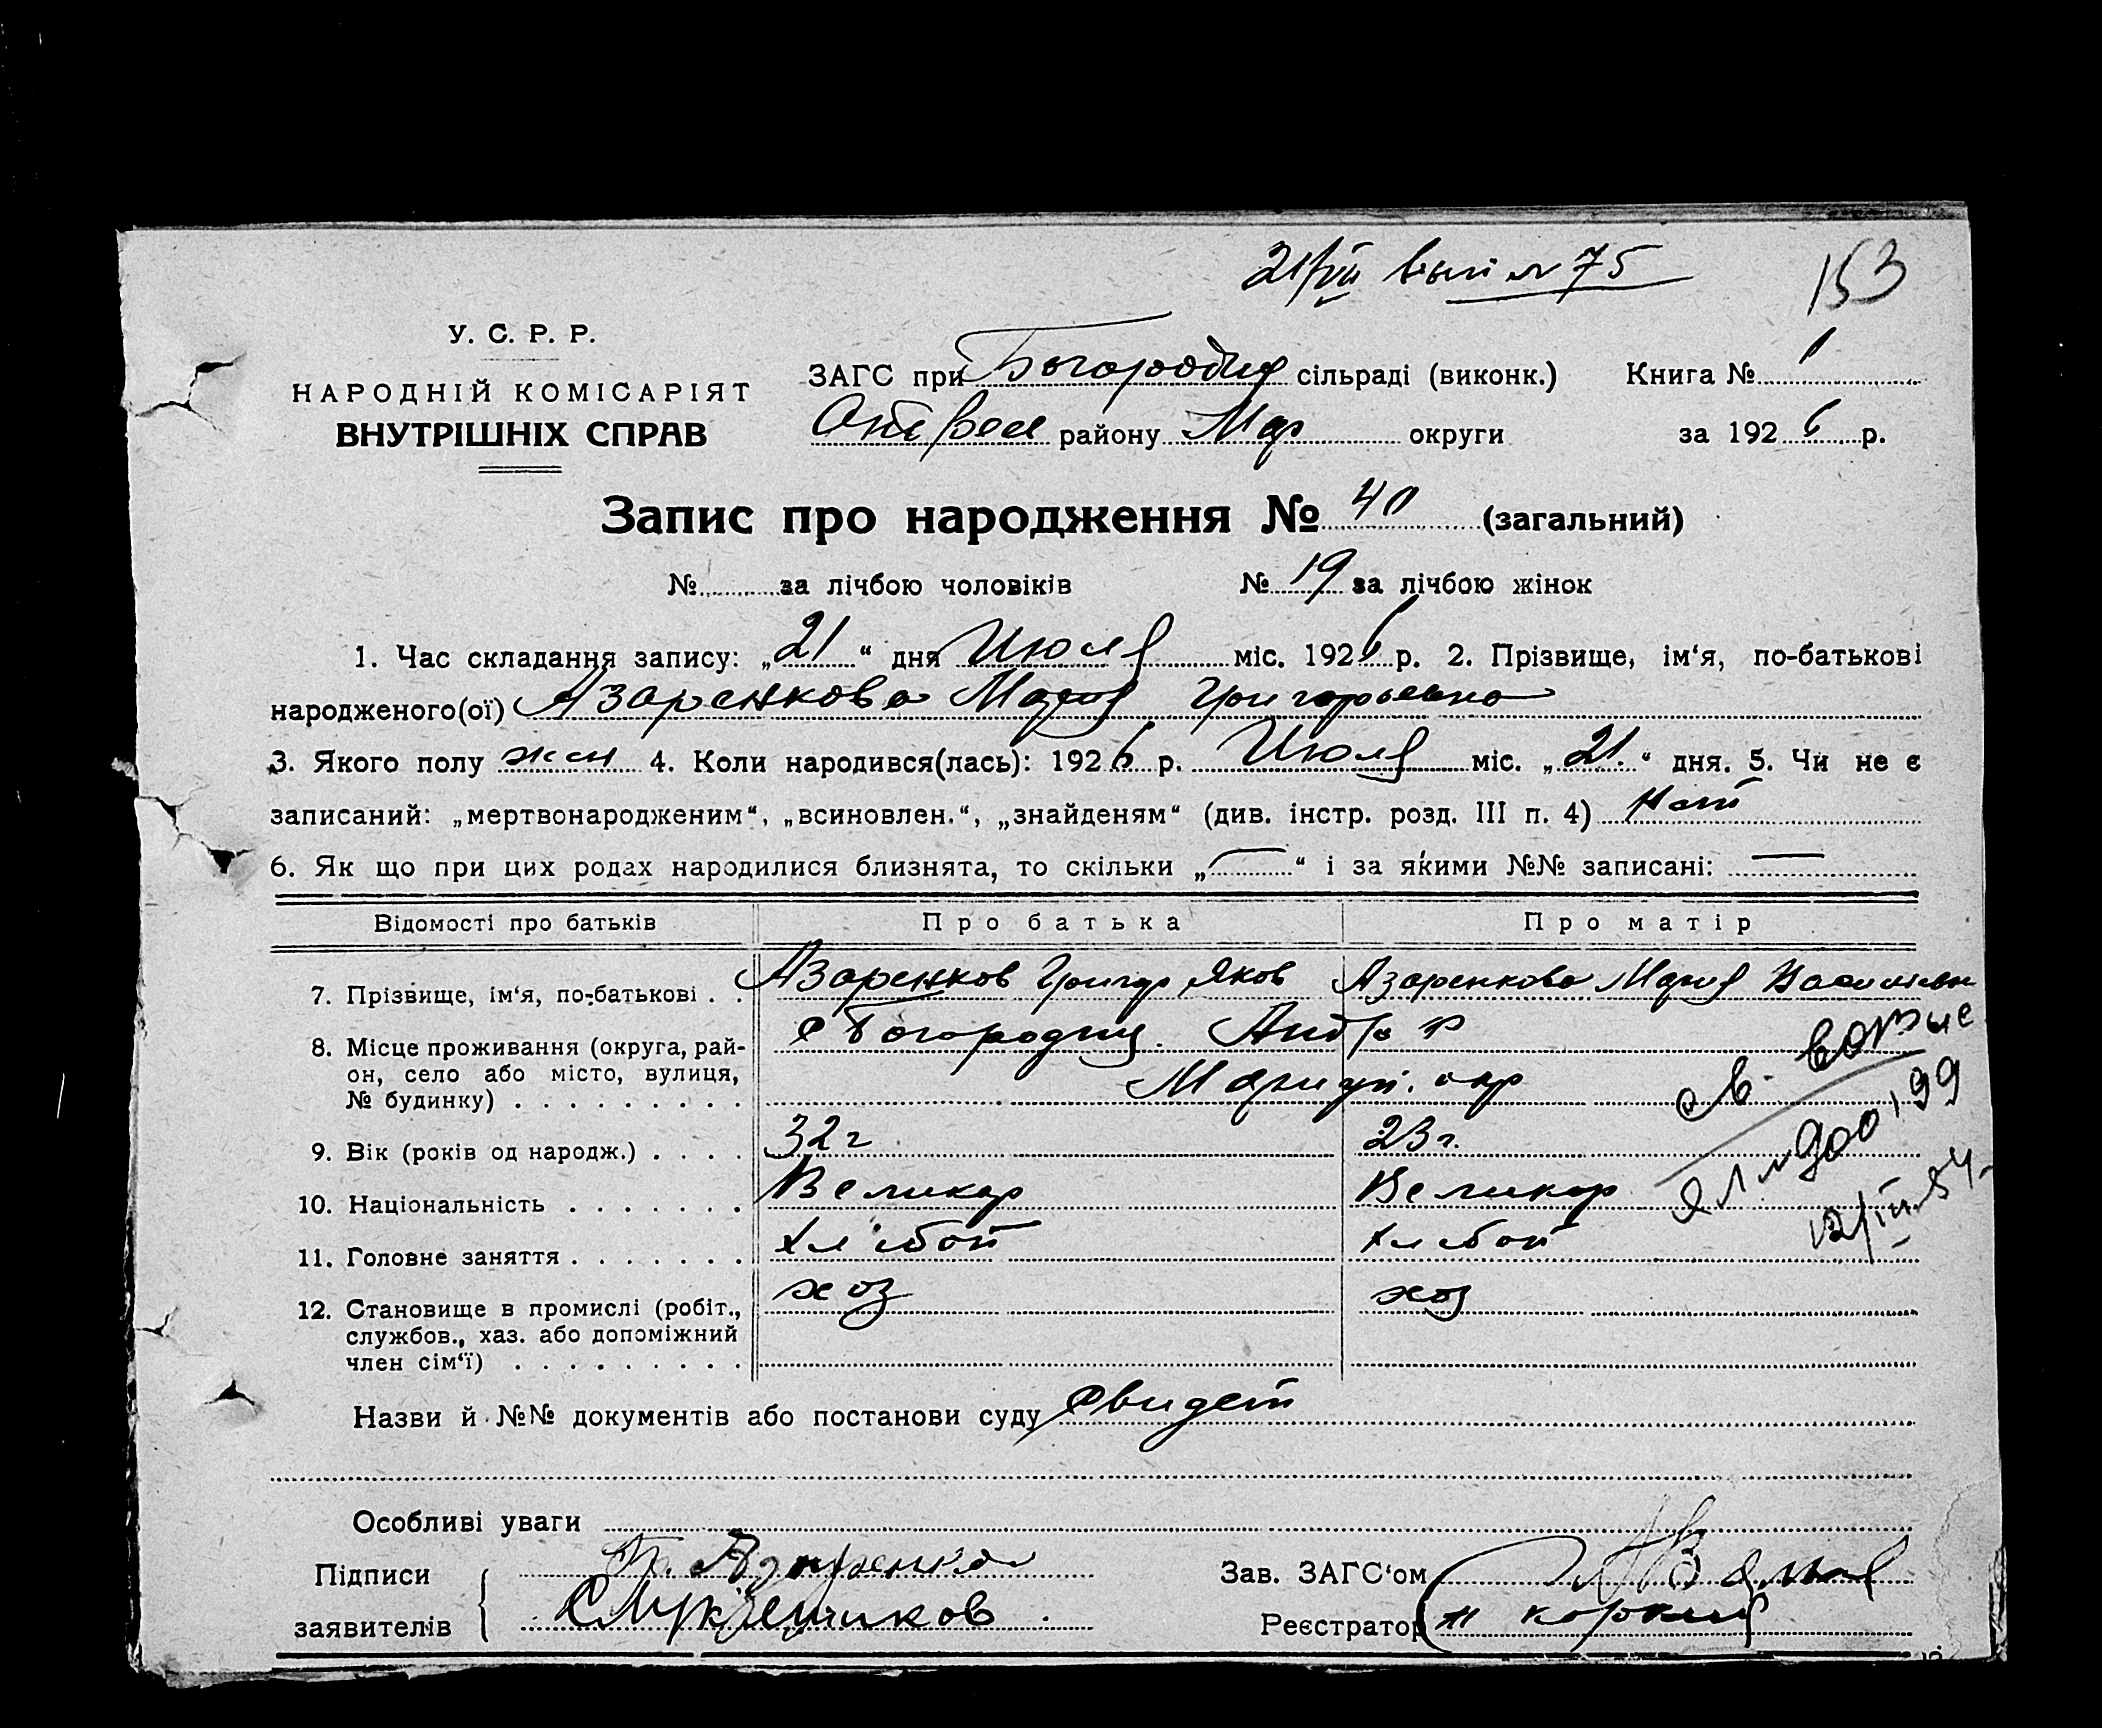 153
У. С. Р. Р.
НАРОДНІЙ КОМІСАРІЯТ
ВНУТРІШНІХ СПРАВ
ЗАГС при Богородиц сільраді (виконк.) Книга № 1
району Мар округи за 1926 р.
Запис про народження № 40 (загальний)
№ за лічбою чоловіків № 19 за лічбою жінок
1. Час складання запису: „21“ дня Июля міс. 1926 р. 2. Прізвище, ім‘я, по-батькові
народженого(ої) Азаренкова Мария Григорьевна
3. Якого полу жен 4. Коли народився(лась): 1926 р. Июля міс. „21.“ дня. 5. Чи не є
записаний: „мертвонародженим“, „всиновлен.“, „знайденям“ (див. інстр. розд. III п. 4) нет
6. Як що при цих родах народилися близнята, то скільки „—“ і за якими №№ записані: —
Відомості про батьків Про батька Про матір
7. Прізвище, ім‘я, по-батькові . . Азаренков Григор Яков Азаренкова Мария Васильевн
8. Місце проживання (округа, рай-
он, село або місто, вулиця,
№ будинку) . . . . . . . . .
с Богородиц. Андр р
Мариуп. окр
9. Вік (років од народж.) . . . . 32 г 23 г.
10. Національність . . . . . . . Великор Великор
11. Головне заняття . . . . . . . Хлебоп Хлебоп
12. Становище в промислі (робіт.,
службов., хаз. або допоміжний
член сім‘ї) . . . . . . . . .
хоз хоз
Назви й №№ документів або постанови суду Свидет
Особливі уваги
Підписи
заявителів
Зав. ЗАГС‘ом
Реєстратор